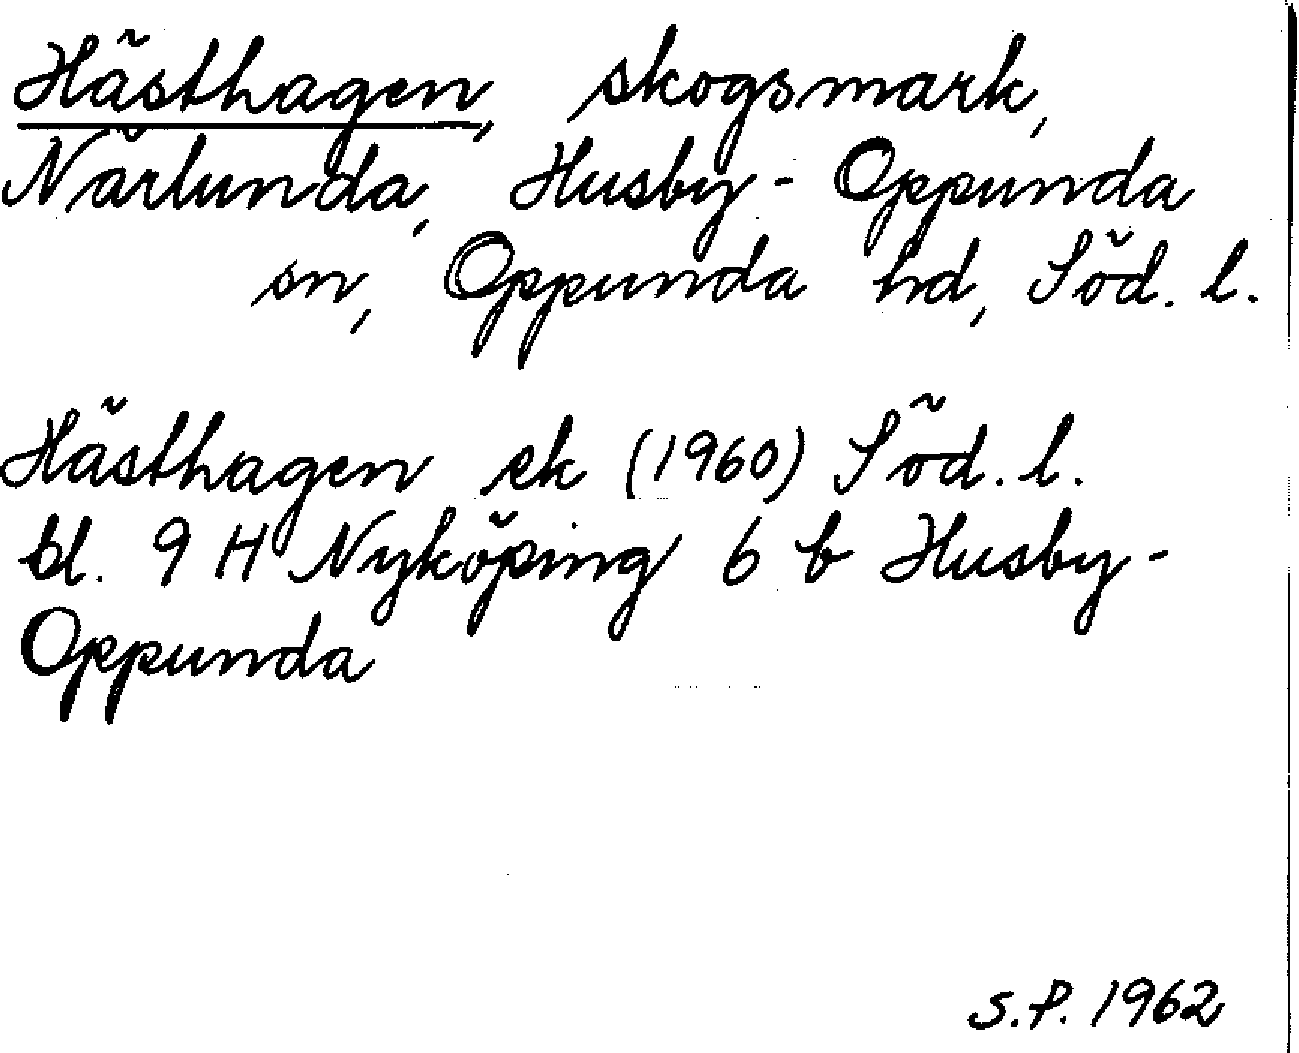 Hästhagen, skogsmark,
Närlunda, Husby-Oppunda
sn, Oppunda hd, Söd. l.
Hästhagen ek (1960) Söd. l.
bl. 9 H Nyköping 6 b Husby-
Oppunda
S.P. 1962